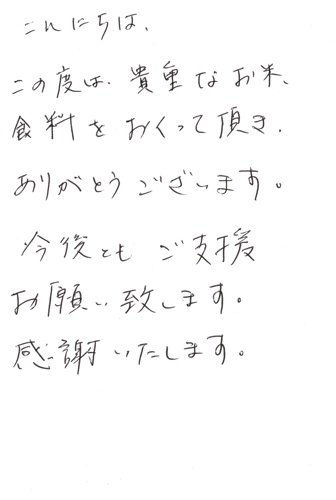 こんにちは、
この度は、貴重なお米、
食料をおくって頂き、
ありがとうございます。
今後とも ご支援
お願い致します。
感謝いたします。